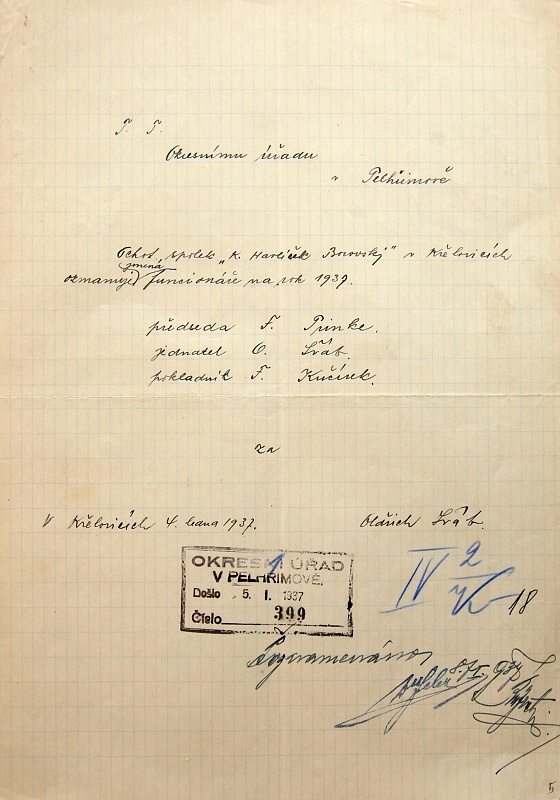 T. T.
Okresnímu úřadu
v Pelhřimově
Ochot. spolek „K. Havlíček Borovský" v Křelovicích
jmena
oznamuje funcionáře na rok 1937.
předseda F. Pinke.
jednatel O. Šváb.
pokladník F. Kučírek.
za
V Křelovicích 4. ledna 1937.
Oldřich Šváb.
OKRESNÍ ÚŘAD
V PELHŘIMOVĚ.
Došlo 5. I. 1937
Číslo 399
1
IV 2
18
Poznamenáno
8/I. 937
5